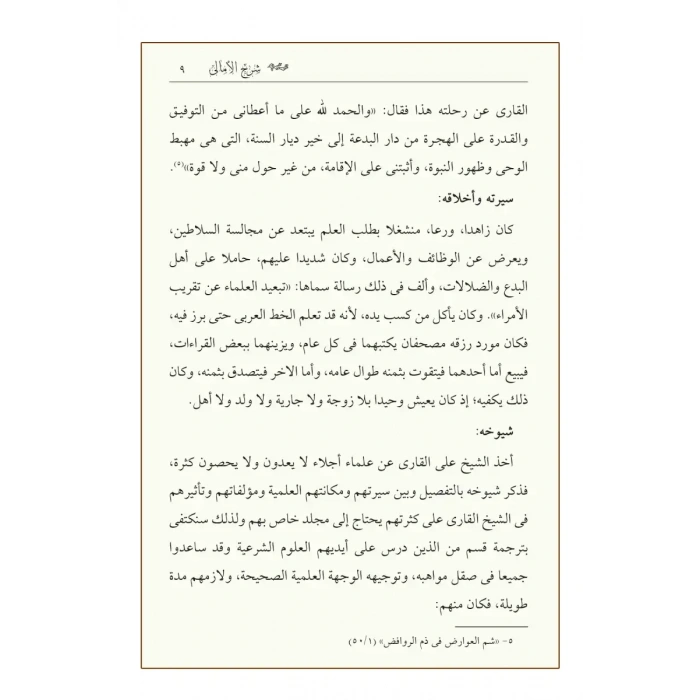 شرح الأمالي ٩
القارى عن رحلته هذا فقال: «والحمد لله على ما أعطانى من التوفيق
والقدرة على الهجرة من دار البدعة إلى خير ديار السنة، التى هى مهبط
الوحى وظهور النبوة، وأثبتنى على الإقامة، من غير حول منى ولا قوة»(٥).
سيرته وأخلاقه:
كان زاهدا، ورعا، منشغلا بطلب العلم يبتعد عن مجالسة السلاطين،
ويعرض عن الوظائف والأعمال، وكان شديدا عليهم، حاملا على أهل
البدع والضلالات، وألف فى ذلك رسالة سماها: «تبعيد العلماء عن تقريب
الأمراء». وكان يأكل من كسب يده، لأنه قد تعلم الخط العربى حتى برز فيه،
فكان مورد رزقه مصحفان يكتبهما فى كل عام، ويزينهما ببعض القراءات،
فيبيع أما أحدهما فيتقوت بثمنه طوال عامه، وأما الاخر فيتصدق بثمنه، وكان
ذلك يكفيه؛ إذ كان يعيش وحيدا بلا زوجة ولا جارية ولا ولد ولا أهل.
شيوخه:
أخذ الشيخ على القارى عن علماء أجلاء لا يعدون ولا يحصون كثرة،
فذكر شيوخه بالتفصيل وبين سيرتهم ومكانتهم العلمية ومؤلفاتهم وتأثيرهم
فى الشيخ القارى على كثرتهم يحتاج إلى مجلد خاص بهم ولذلك سنكتفى
بترجمة قسم من الذين درس على أيديهم العلوم الشرعية وقد ساعدوا
جميعا فى صقل مواهبه، وتوجيهه الوجهة العلمية الصحيحة، ولازمهم مدة
طويلة، فكان منهم:
٥- «شم العوارض فى ذم الروافض» (٥٠/١)